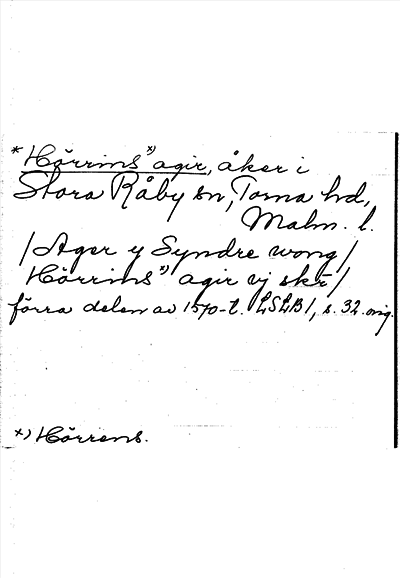 * Hörrins *) agir, åker i
Stora Råby sn, Torna hd,
Malm. l.
/Ager y Syndre wong/
Hörrins *) agir vj skr/
förra delen av 1570-t. LSLB/, s. 32. orig.
*) Hörrens.